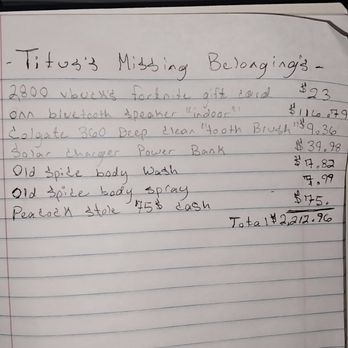 - Titus's Missing Belonging's -
2800 vbucks fortnite gift card $23
onn bluetooth speaker "indoor" $116.79
Colgate 360 Deep clean "tooth Brush" $9.36
Solar charger Power Bank $39.98
Old Spice body Wash $7.82
Old Spice body spray 7.99
Peacock stole 75$ cash $75.
Total $2,212.96